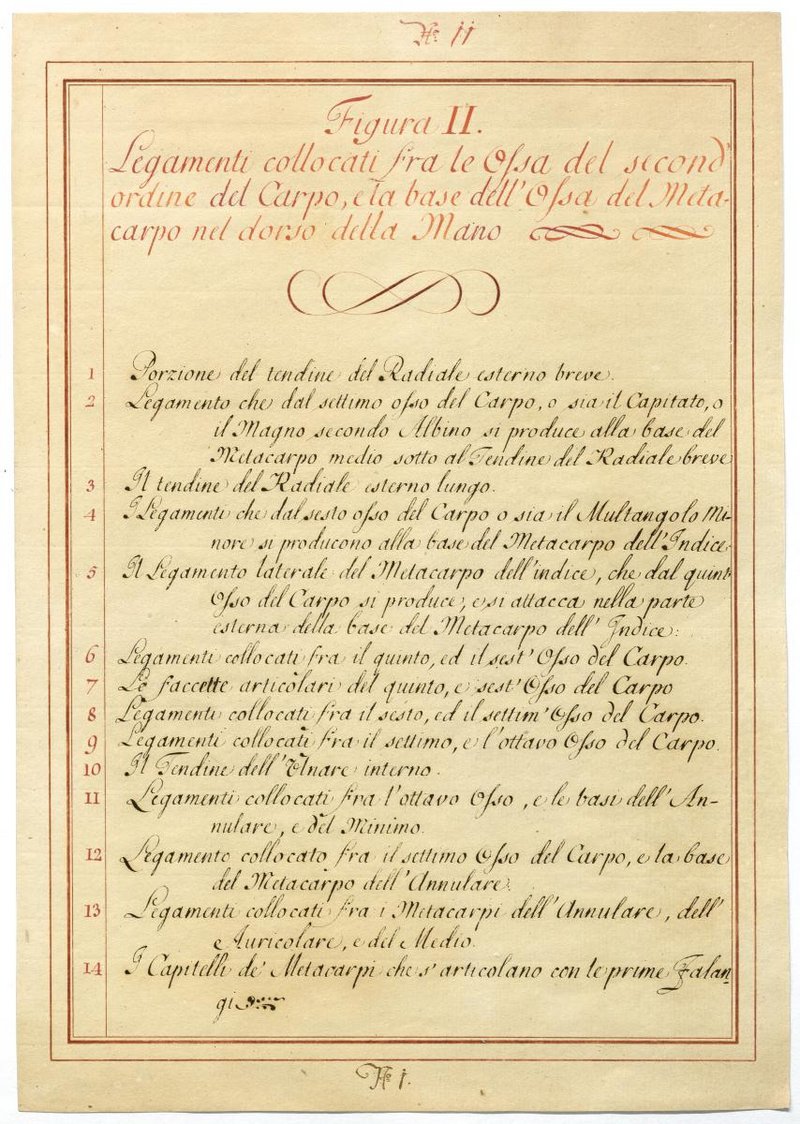 No. 11
Figura II.
Legamenti collocati fra le Ossa del second'
ordine del Carpo, e la base dell'Ossa del Meta-
carpo nel dorso della Mano
1 Porzione del tendine del Radiale esterno breve.
2 Legamento che dal settimo osso del Carpo, o sia il Capitato, o
il Magno secondo Albino si produce alla base del
Metacarpo medio sotto al Tendine del Radiale breve
3 Il tendine del Radiale esterno lungo.
4 I Legamenti che dal sesto osso del Carpo o sia il Multangolo Mi-
nore si producono alla base del Metacarpo dell'Indice.
5 Il Legamento laterale del Metacarpo dell'indice, che dal quint'
Osso del Carpo si produce, e si attacca nella parte
esterna della base del Metacarpo dell' Indice:
6 Legamenti collocati fra il quinto, ed il sest' Osso del Carpo.
7 Le faccette articolari del quinto, e sest' Osso del Carpo
8 Legamenti collocati fra il sesto, ed il settim' Osso del Carpo.
9 Legamenti collocati fra il settimo, e l'ottavo Osso del Carpo.
10 Il Tendine dell'Ulnare interno.
11 Legamenti collocati fra l'ottavo Osso, e le basi dell'An-
nulare, e del Minimo.
12 Legamento collocato fra il settimo Osso del Carpo, e la base
del Metacarpo dell'Annulare.
13 Legamenti collocati fra i Metacarpi dell'Annulare, dell'
Auricolare, e del Medio.
14 I Capitelli de' Metacarpi che s' articolano con le prime Falan-
gi
No. 1.